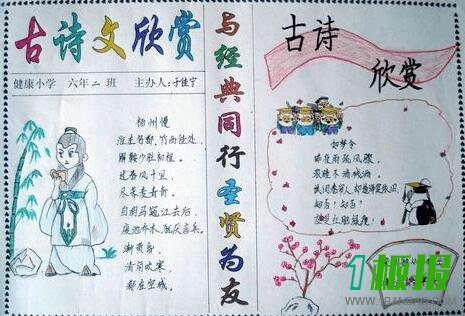 古诗文欣赏
健康小学 六年二班 主办人:于佳宁
杨州慢
淮左名都,竹西佳处,
解鞍少驻初程。
过春风十里,
尽荠麦青青。
自胡马窥江去后,
废池乔木,犹厌言兵。
渐黄昏
清角吹寒
都在空城。
与经典同行圣贤为友
古诗
欣赏
如梦令
昨夜雨疏风骤,
浓睡不消残酒。
试问卷帘人,却道海棠依旧。
知否?知否?
1板报
WWW.1BANBAO.COM